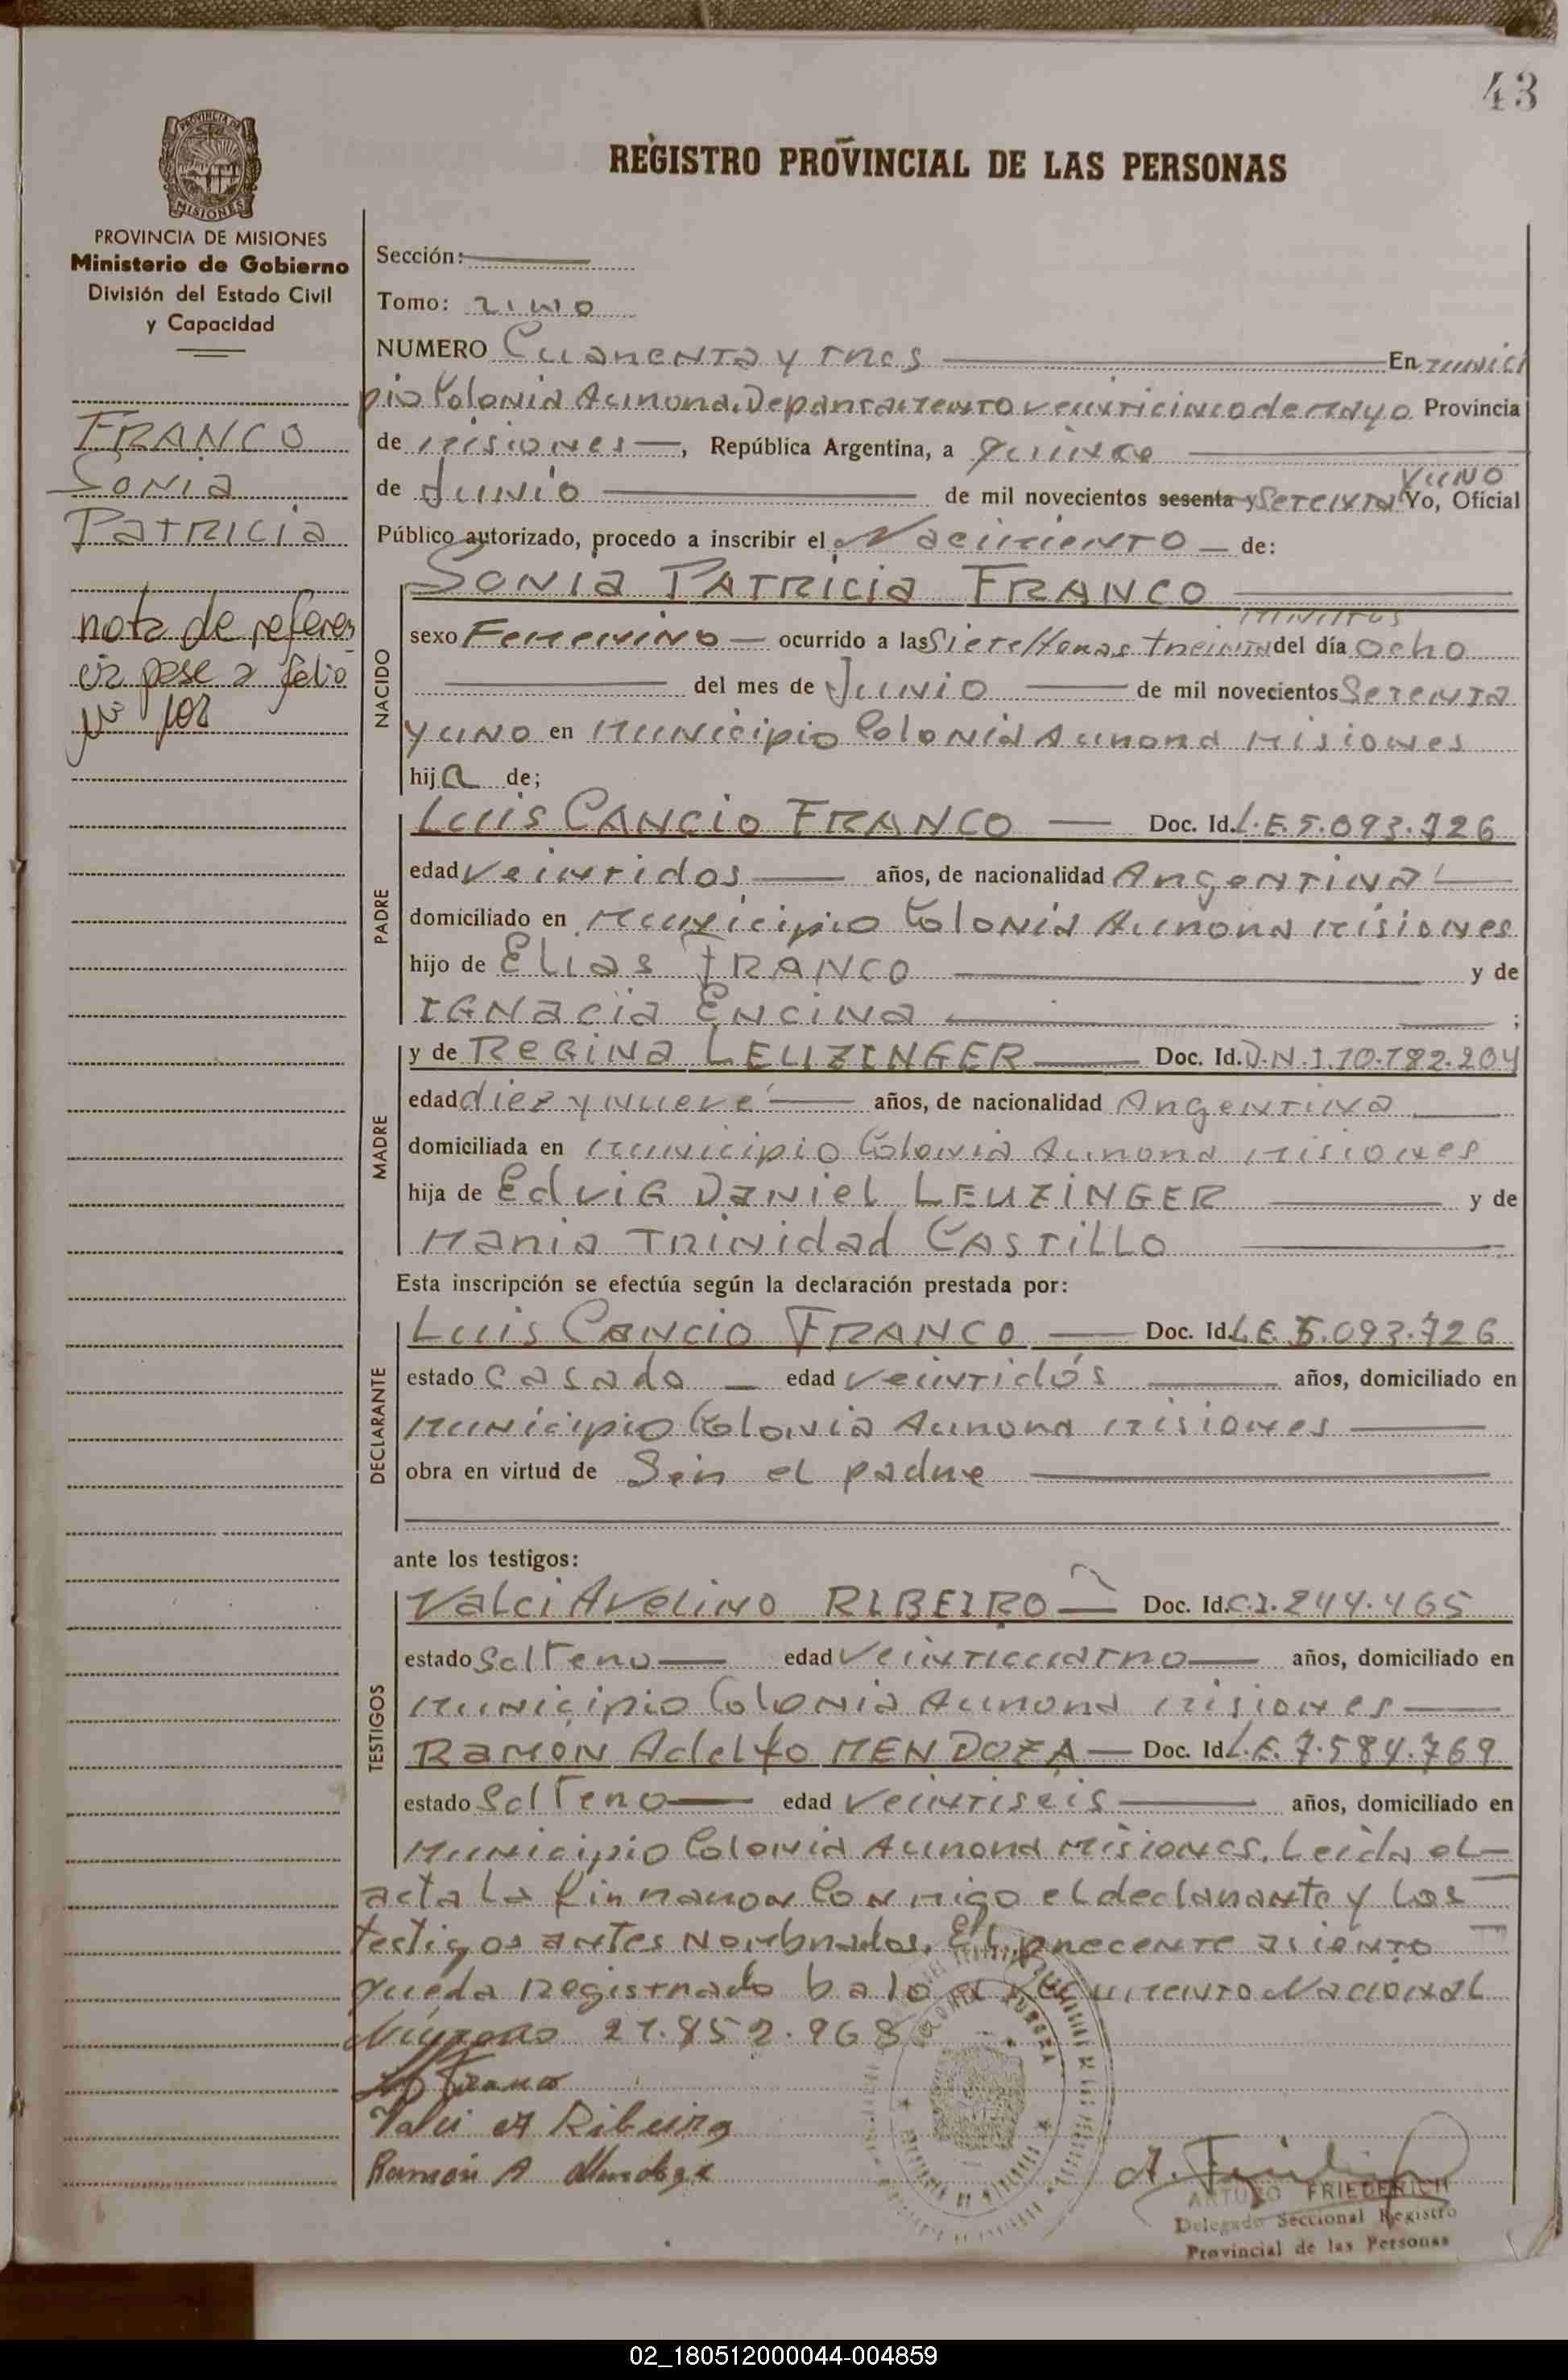 43
REGISTRO PROVINCIAL DE LAS PERSONAS
PROVINCIA DE MISIONES
Ministerio de Gobierno
División del Estado Civil
y Capacidad
FRANCO
Sonia
Patricia
nota de referen
cia pase a folio
Nº 108
Sección:
Tomo: uno
NUMERO Cuarenta y tres En Munici
pio Colonia Aurora. Departamento veinticinco de mayo Provincia
de Misiones, República Argentina, a quince
de Junio de mil novecientos sesenta y Setenta y uno Yo, Oficial
Público autorizado, procedo a inscribir el Nacimiento de:
NACIDO
Sonia Patricia FRANCO
sexo Femenino ocurrido a las Siete Horas treinta minutos del día ocho
del mes de Junio de mil novecientos Setenta
y uno en Municipio Colonia Aurora Misiones
hija de;
PADRE
Luis Cancio FRANCO Doc. Id. L.E. 5.093.726
edad veintidos años, de nacionalidad Argentina
domiciliado en Municipio Colonia Aurora Misiones
hijo de Elias FRANCO y de
Ignacia Encina ;
MADRE
y de Regina LEUZINGER Doc. Id. D.N.I. 10.782.204
edad diez y nueve años, de nacionalidad Argentina
domiciliada en Municipio Colonia Aurora Misiones
hija de Edvig Daniel LEUZINGER y de
Maria Trinidad CASTILLO
Esta inscripción se efectúa según la declaración prestada por:
DECLARANTE
Luis Cancio FRANCO Doc. Id. L.E. 5.093.726
estado Casado edad veintidós años, domiciliado en
Municipio Colonia Aurora Misiones
obra en virtud de Ser el padre
ante los testigos:
TESTIGOS
Valci Avelino RIBEIRO Doc. Id. C.I. 244.465
estado Soltero edad Veinticuatro años, domiciliado en
Municipio Colonia Aurora Misiones
Ramon Adelfo MENDOZA Doc. Id. L.E. 7.584.769
estado Soltero edad veintiseis años, domiciliado en
Municipio Colonia Aurora Misiones. Leida el
acta la firmaron Conmigo el declarante y los
testigos antes Nombrados. El precente asiento
queda Registrado bajo el Documento Nacional
Número 21.852.968
Franco
Valci A Ribeiro
Ramón A Mendoza
A. Friederich
ARTURO FRIEDERICH
Delegado Seccional Registro
Provincial de las Personas
02_180512000044-004859